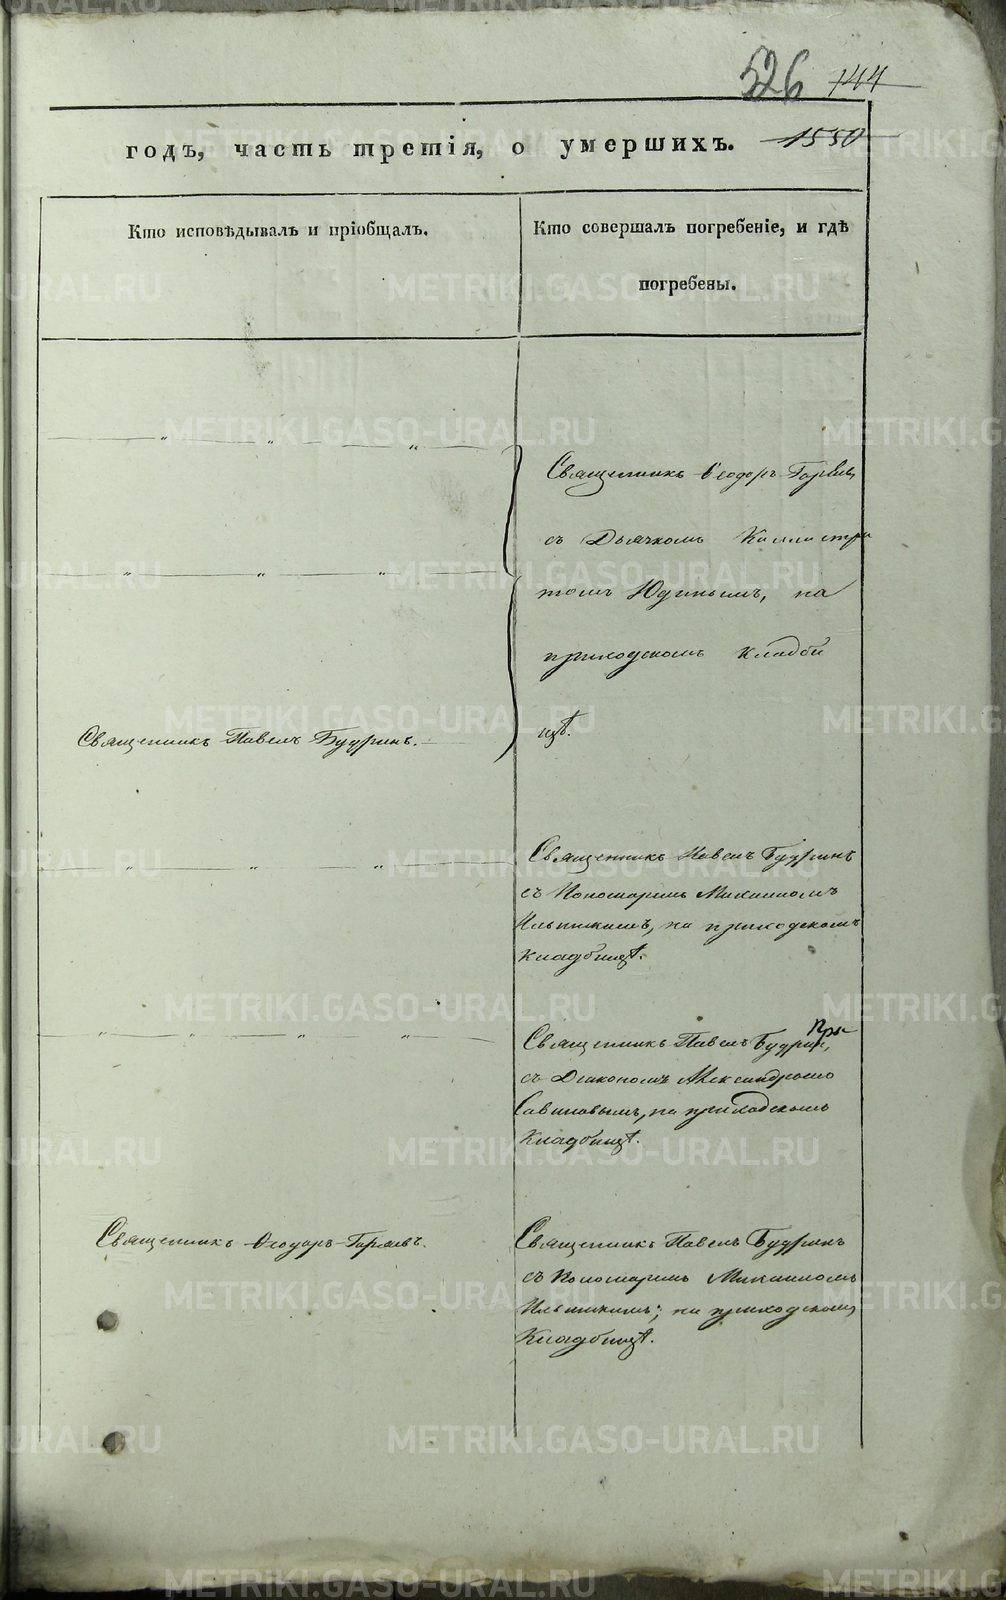 526 744
годъ, часть третія, о умершихъ. 1550
Кто исповѣдывалъ и пріобщалъ.
Кто совершалъ погребеніе, и гдѣ
погребены.
Священникъ Ѳеодоръ
съ Дьячкомъ Каллистра
томъ Юдинымъ, на
приходскомъ кладби
щѣ.
Священникъ Павелъ Будринъ.
Священникъ Павелъ Будринъ
съ Пономаремъ Михаиломъ
на приходскомъ
кладбищѣ.
Священникъ Павелъ Будринъ,
съ Діакономъ Александромъ
Савиновымъ, на приходскомъ
Кладбищѣ.
Священникъ Ѳеодоръ
Священникъ Павелъ Будринъ
съ Пономаремъ Михаиломъ
на приходскомъ
Кладбищѣ.
METRIKI.GASO-URAL.RU